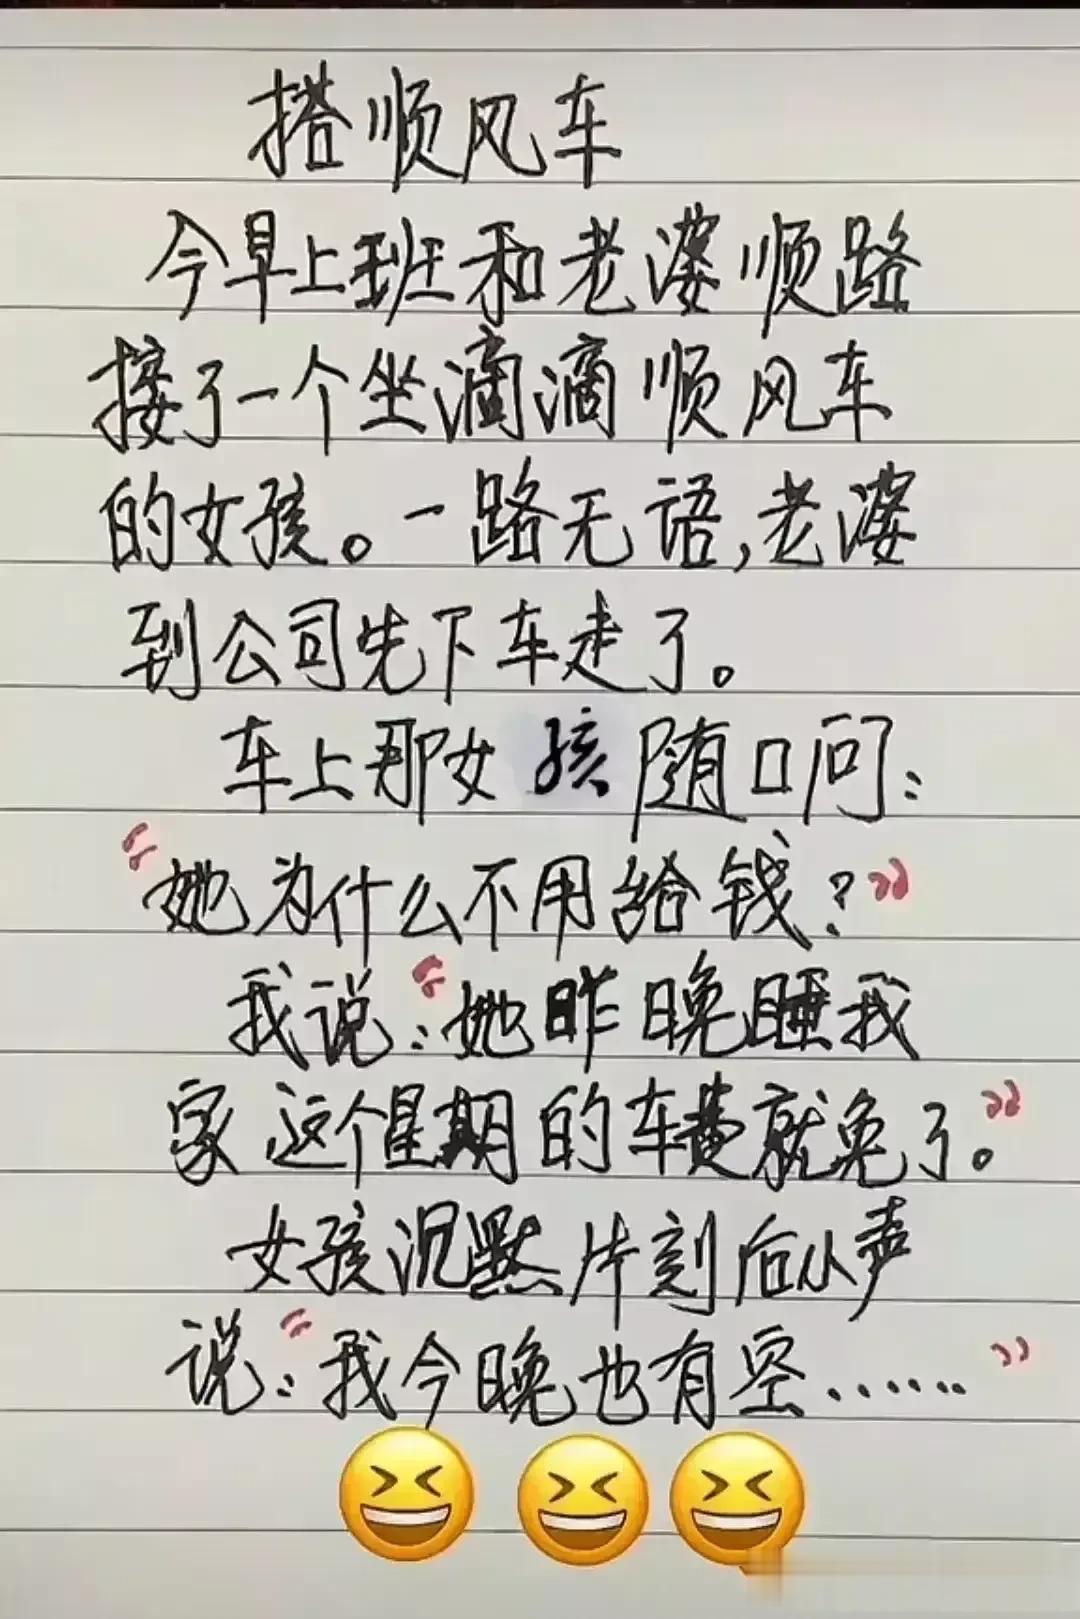 搭顺风车
今早上班和老婆顺路
接了一个坐滴滴顺风车
的女孩。一路无语,老婆
到公司先下车走了。
车上那女孩随口问:
“她为什么不用给钱?”
我说:“她昨晚睡我
家这个星期的车费就免了。”
女孩沉默片刻后小声
说:“我今晚也有空……”